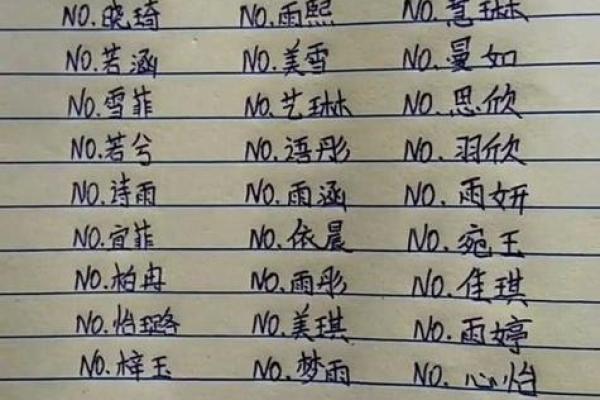 NO.晓琦 NO.雨熙 NO.慧琳
NO.若涵 NO.美雪 NO.曼如
NO.雪菲 NO.艺琳 NO.思欣
NO.若兮 NO.语彤 NO.羽欣
NO.诗雨 NO.雨涵 NO.雨妍
NO.宜菲 NO.依晨 NO.宛玉
NO.柏冉 NO.雨彤 NO.佳琪
NO.怡璐 NO.美琪 NO.雨婷
NO.梓玉 NO.梦雨 NO.心怡